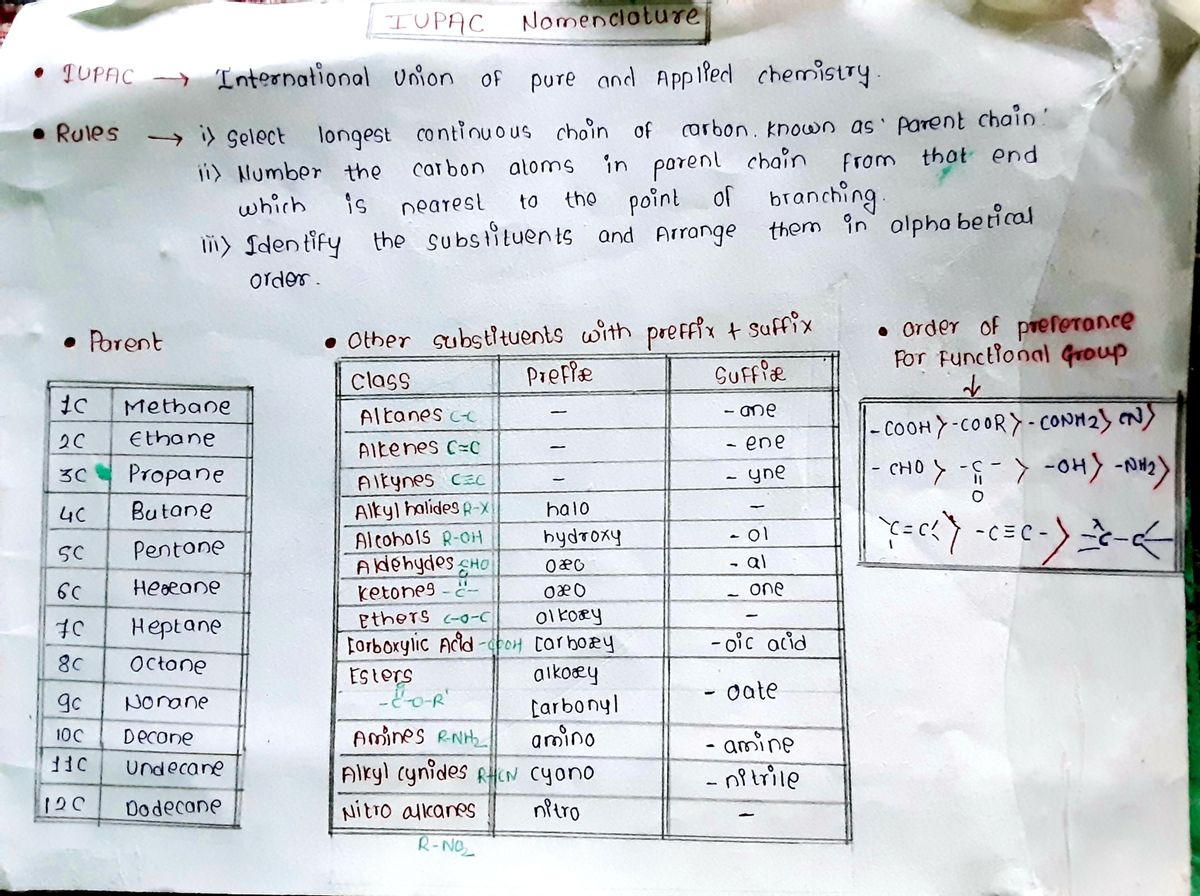 IUPAC Nomenclature
• IUPAC → International Union of pure and Applied chemistry.
• Rules → i> Select longest continuous chain of carbon. known as 'Parent chain'
ii> Number the carbon atoms in parent chain from that end
which is nearest to the point of branching.
iii> Identify the substituents and Arrange them in alphabetical
order.
• Parent
1C Methane
2C Ethane
3C Propane
4C Butane
5C Pentane
6C Hexane
7C Heptane
8C Octane
9C Nonane
10C Decane
11C Undecane
12C Dodecane
• Other substituents with preffix + suffix
Class Prefix Suffix
Alkanes C-C – - ane
Alkenes C=C – - ene
Alkynes C≡C – - yne
Alkyl halides R-X halo –
Alcohols R-OH hydroxy - ol
Aldehydes CHO oxo - al
Ketones -C- oxo - one
O
Ethers C-O-C alkoxy –
Carboxylic Acid -COOH Carboxy - oic acid
Esters alkoxy
-C-O-R' Carbonyl - oate
O
Amines R-NH2 amino - amine
Alkyl cynides CN cyano - nitrile
Nitro alkanes nitro –
R-NO2
• order of preferance
For Functional Group
↓
- COOH > -COOR > - CONH2 > CN >
- CHO > -C- > -OH > -NH2 >
O
C=C > -C≡C- > -C-C-